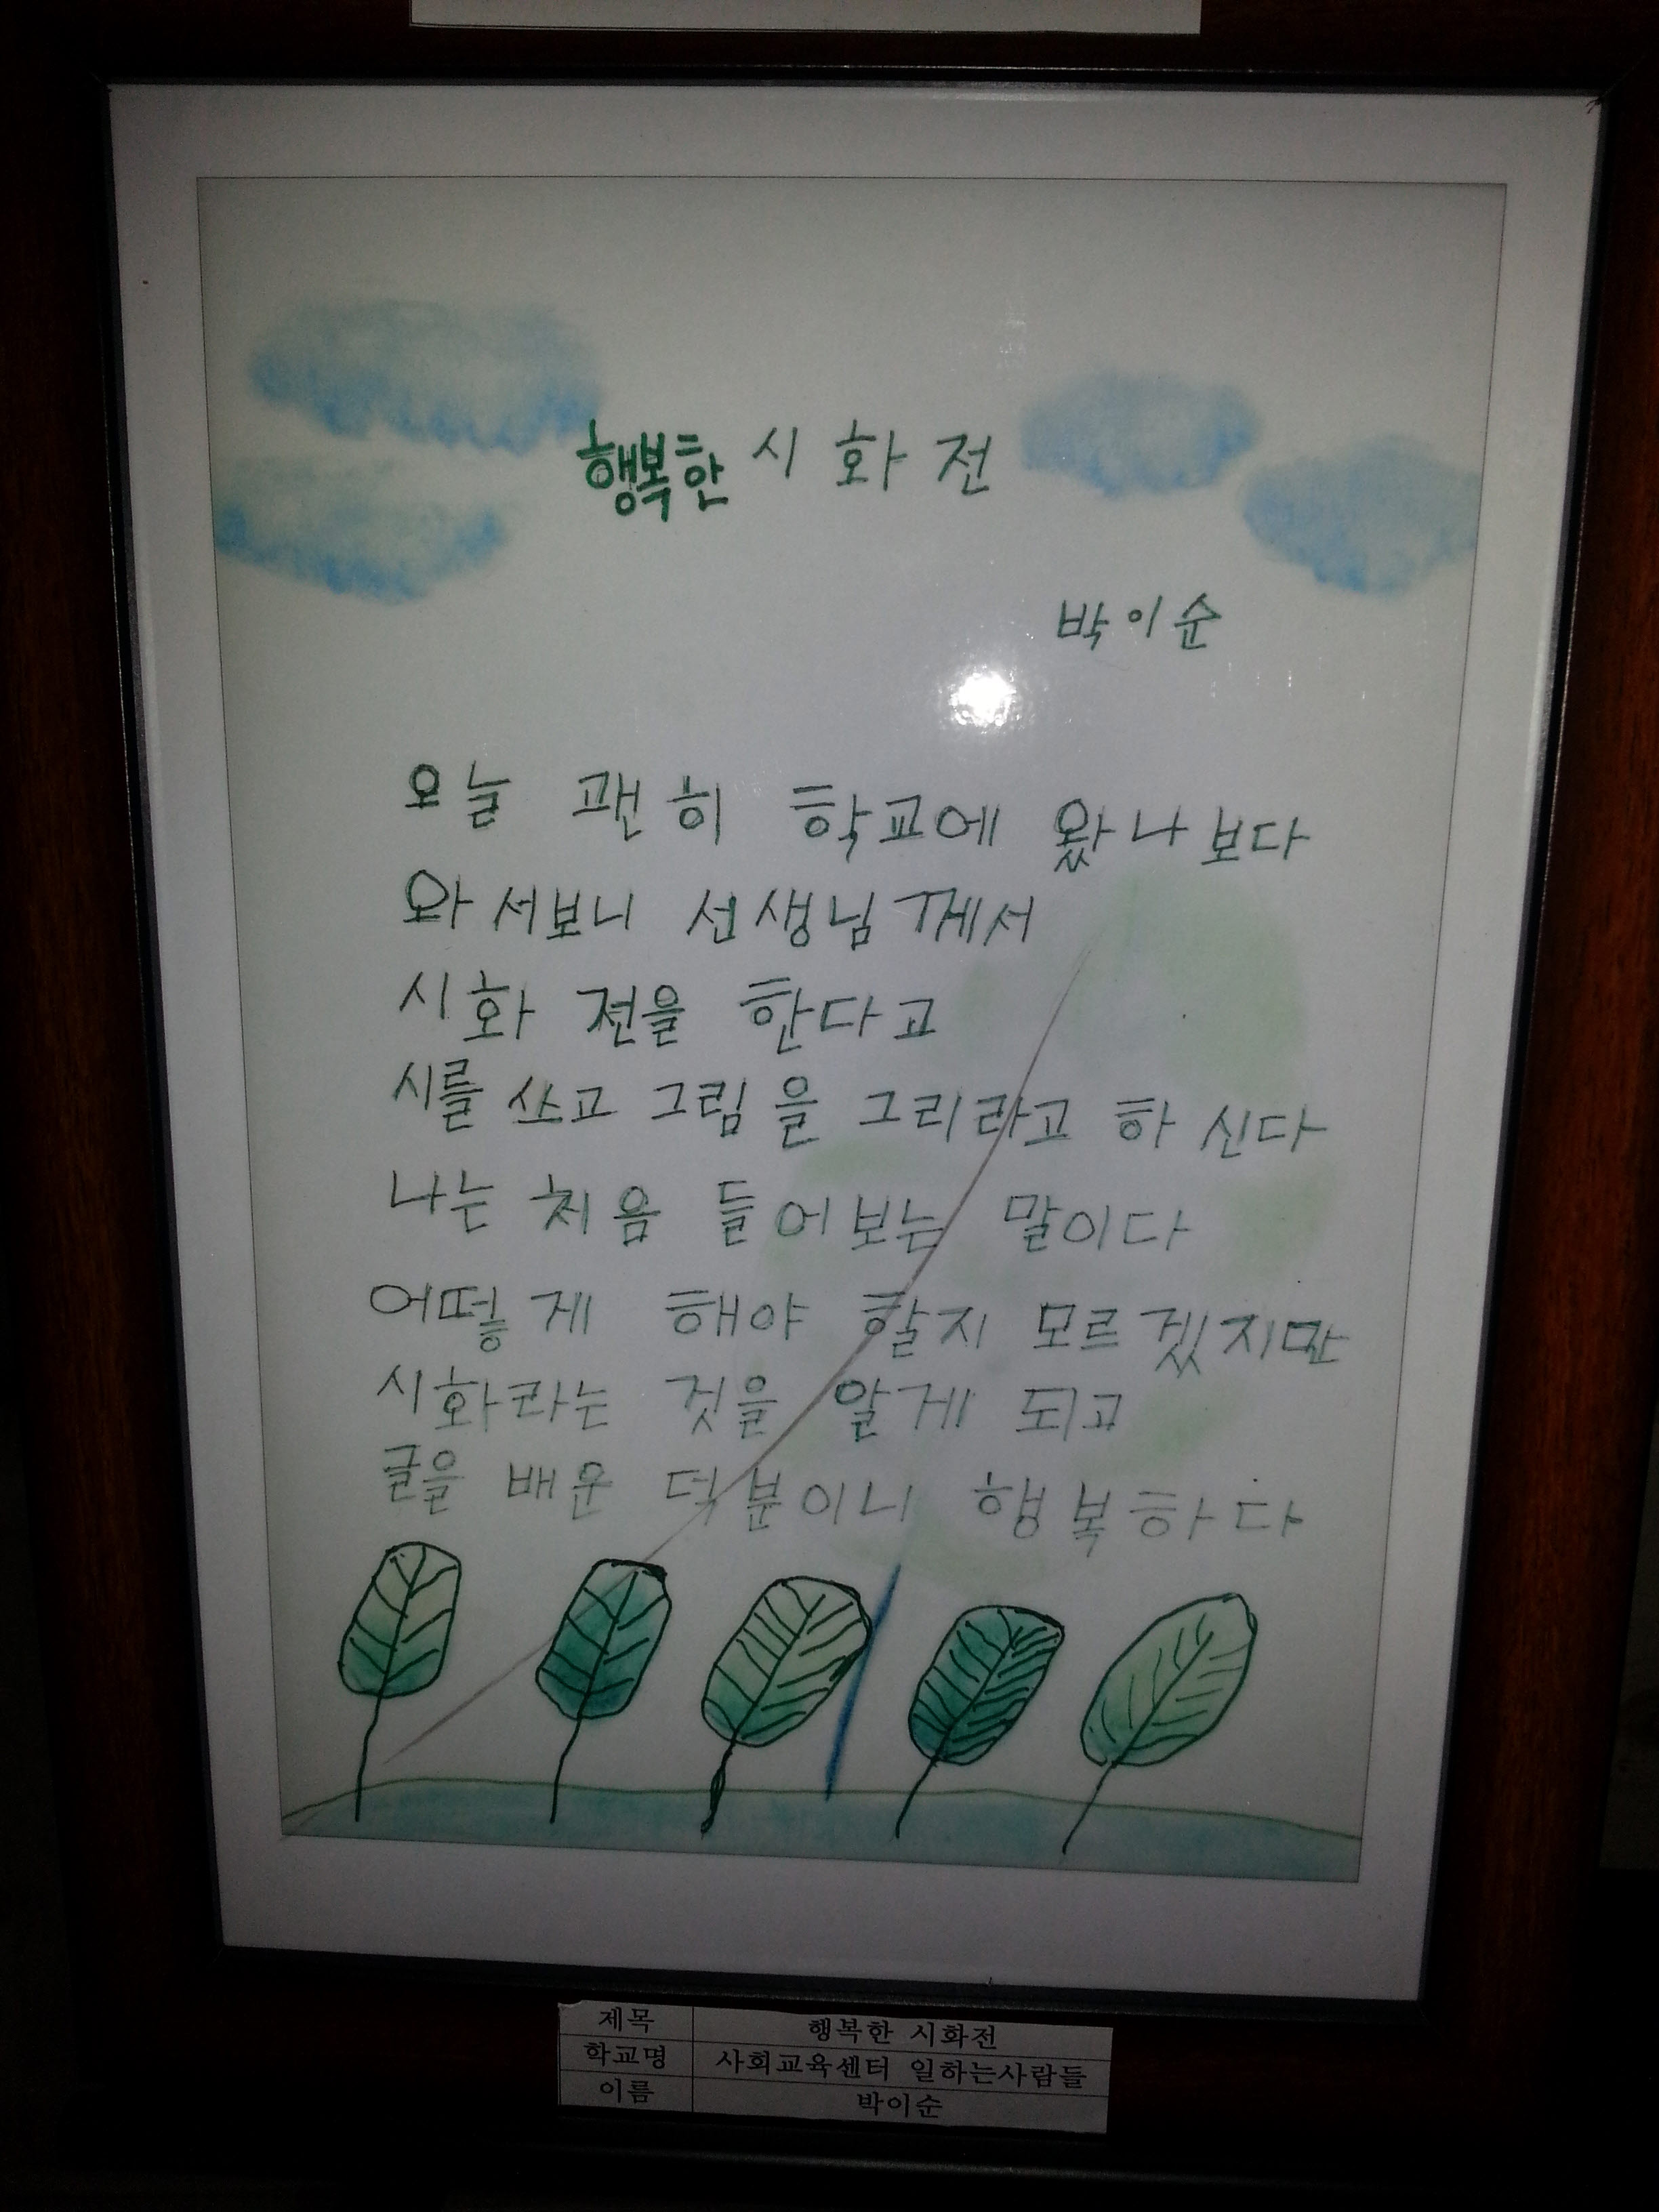 행복한 시화전
박이순
오늘 괜히 학교에 왔나보다
와서보니 선생님께서
시화전을 한다고
시를 쓰고 그림을 그리라고 하신다
나는 처음 들어보는 말이다
어떻게 해야 할지 모르겠지만
시화라는 것을 알게 되고
글을 배운 덕분이니 행복하다
제목 행복한 시화전
학교명 사회교육센터 일하는사람들
이름 박이순